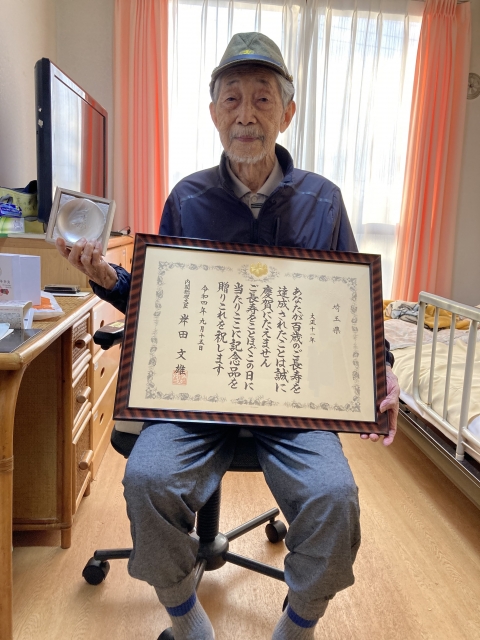 埼玉県
大正十一年
あなたが百歳のご長寿を
達成されたことは誠に
慶賀にたえません
ご長寿をことほぐこの日に
当たりここに記念品を
贈りこれを祝します
令和四年九月十五日
内閣総理大臣
岸田文雄